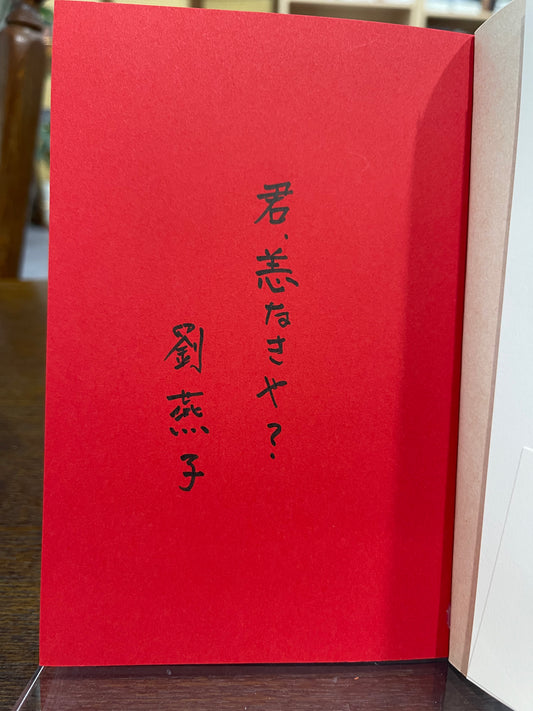 君、恙なきや?
劉燕子